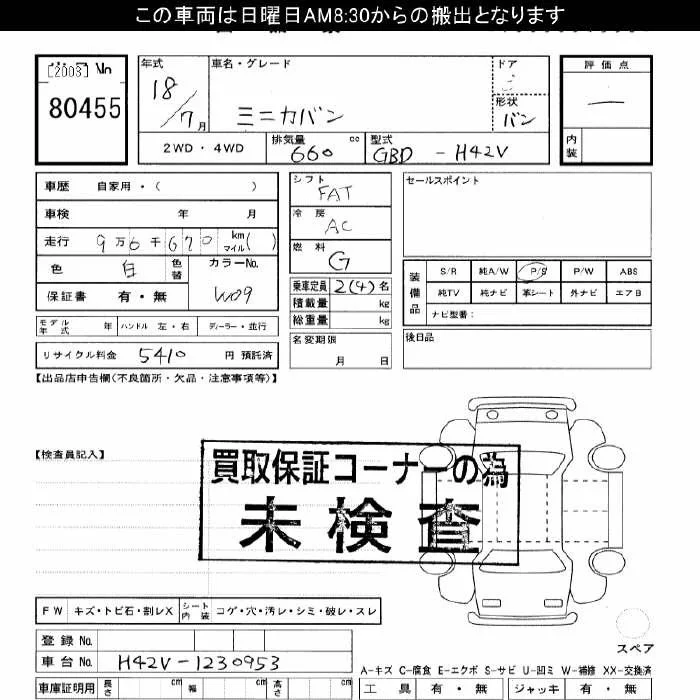 この車両は日曜日AM8:30からの搬出となります
[2003] No
80455
年式 18/7月
車名・グレード ミニカバン
ドア
形状 バン
評価点 —
内装
2WD・4WD
排気量 660 cc
型式 GBD - H42V
車歴 自家用・( )
車検 年 月
走行 9万6千670 km マイル( )
色 白 色替 カラーNo. W09
保証書 有・無
モデル年式 年 ハンドル 左・右 ディーラー・並行
リサイクル料金 5410 円 預託済
シフト FAT
冷房 AC
燃料 G
乗車定員 2(4)名
積載量 kg
総重量 kg
名変期限 月 日
セールスポイント
装備品
S/R 純A/W P/S P/W ABS
純TV 純ナビ 革シート 外ナビ エアB
ナビ型番:
後日品
【出品店申告欄(不良箇所・欠品・注意事項等)】
【検査員記入】
買取保証コーナーの為
未検査
FW キズ・トビ石・割レX シート内装 コゲ・穴・汚レ・シミ・破レ・スレ
スペア
登録No.
車台No. H42V-1230953
車庫証明用 長さ cm 幅 cm 高さ cm
A-キズ C-腐食 E-エクボ S-サビ U-凹ミ W-補修 XX-交換済
工具 有・無 ジャッキ 有・無